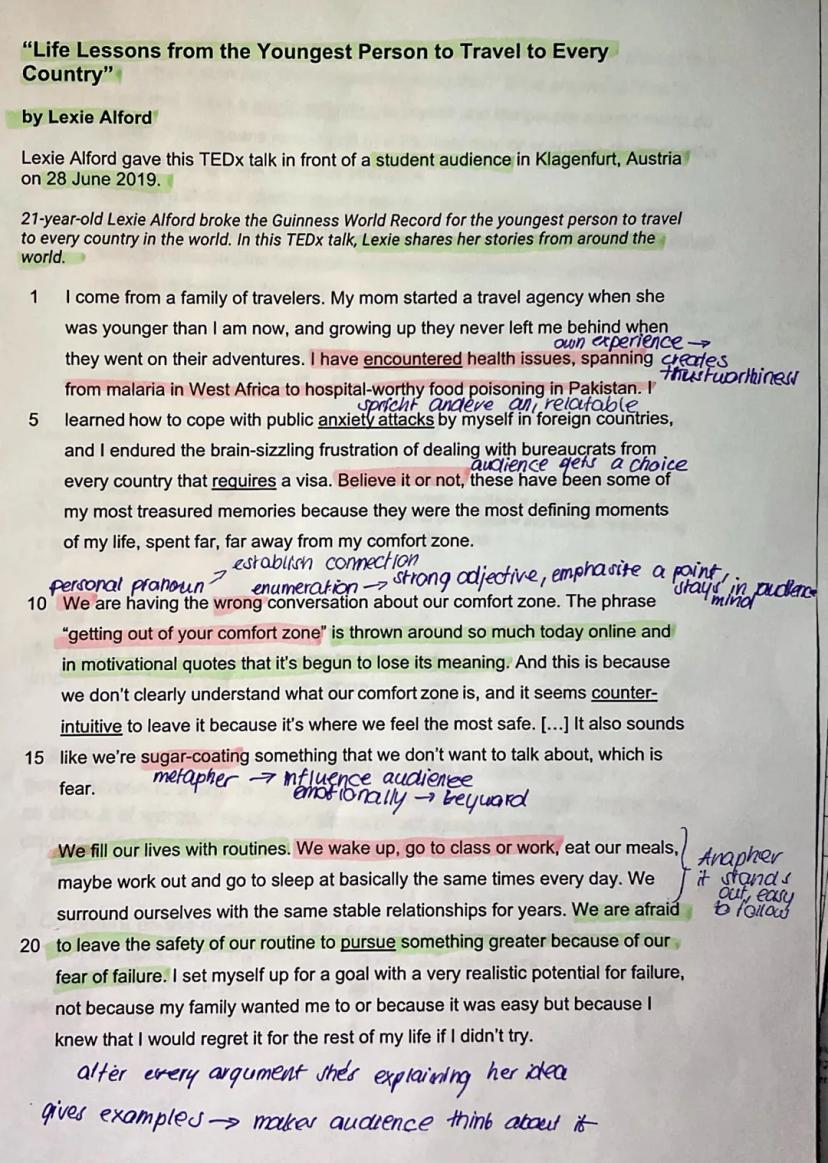 “Life Lessons from the Youngest Person to Travel to Every
Country”
by Lexie Alford
Lexie Alford gave this TEDx talk in front of a student audience in Klagenfurt, Austria
on 28 June 2019.
21-year-old Lexie Alford broke the Guinness World Record for the youngest person to travel
to every country in the world. In this TEDx talk, Lexie shares her stories from around the
world.
1 I come from a family of travelers. My mom started a travel agency when she
was younger than I am now, and growing up they never left me behind when
own experience →
they went on their adventures. I have encountered health issues, spanning creates
trustworthiness
from malaria in West Africa to hospital-worthy food poisoning in Pakistan. I
spricht andere an, relatable
5 learned how to cope with public anxiety attacks by myself in foreign countries,
and I endured the brain-sizzling frustration of dealing with bureaucrats from
audience gets a choice
every country that requires a visa. Believe it or not, these have been some of
my most treasured memories because they were the most defining moments
of my life, spent far, far away from my comfort zone.
establish connection
personal pronoun enumeration → strong adjective, emphasise a point,
stays in audience
mind
10 We are having the wrong conversation about our comfort zone. The phrase
“getting out of your comfort zone” is thrown around so much today online and
in motivational quotes that it’s begun to lose its meaning. And this is because
we don’t clearly understand what our comfort zone is, and it seems counter-
intuitive to leave it because it’s where we feel the most safe. [...] It also sounds
15 like we’re sugar-coating something that we don’t want to talk about, which is
fear.
metapher → influence audience
emotionally →
We fill our lives with routines. We wake up, go to class or work, eat our meals,
maybe work out and go to sleep at basically the same times every day. We
surround ourselves with the same stable relationships for years. We are afraid
Anapher
it stands
out, easy
to follow
20 to leave the safety of our routine to pursue something greater because of our
fear of failure. I set myself up for a goal with a very realistic potential for failure,
not because my family wanted me to or because it was easy but because I
knew that I would regret it for the rest of my life if I didn’t try.
after every argument she's explaining her idea
gives examples → makes audience think about it